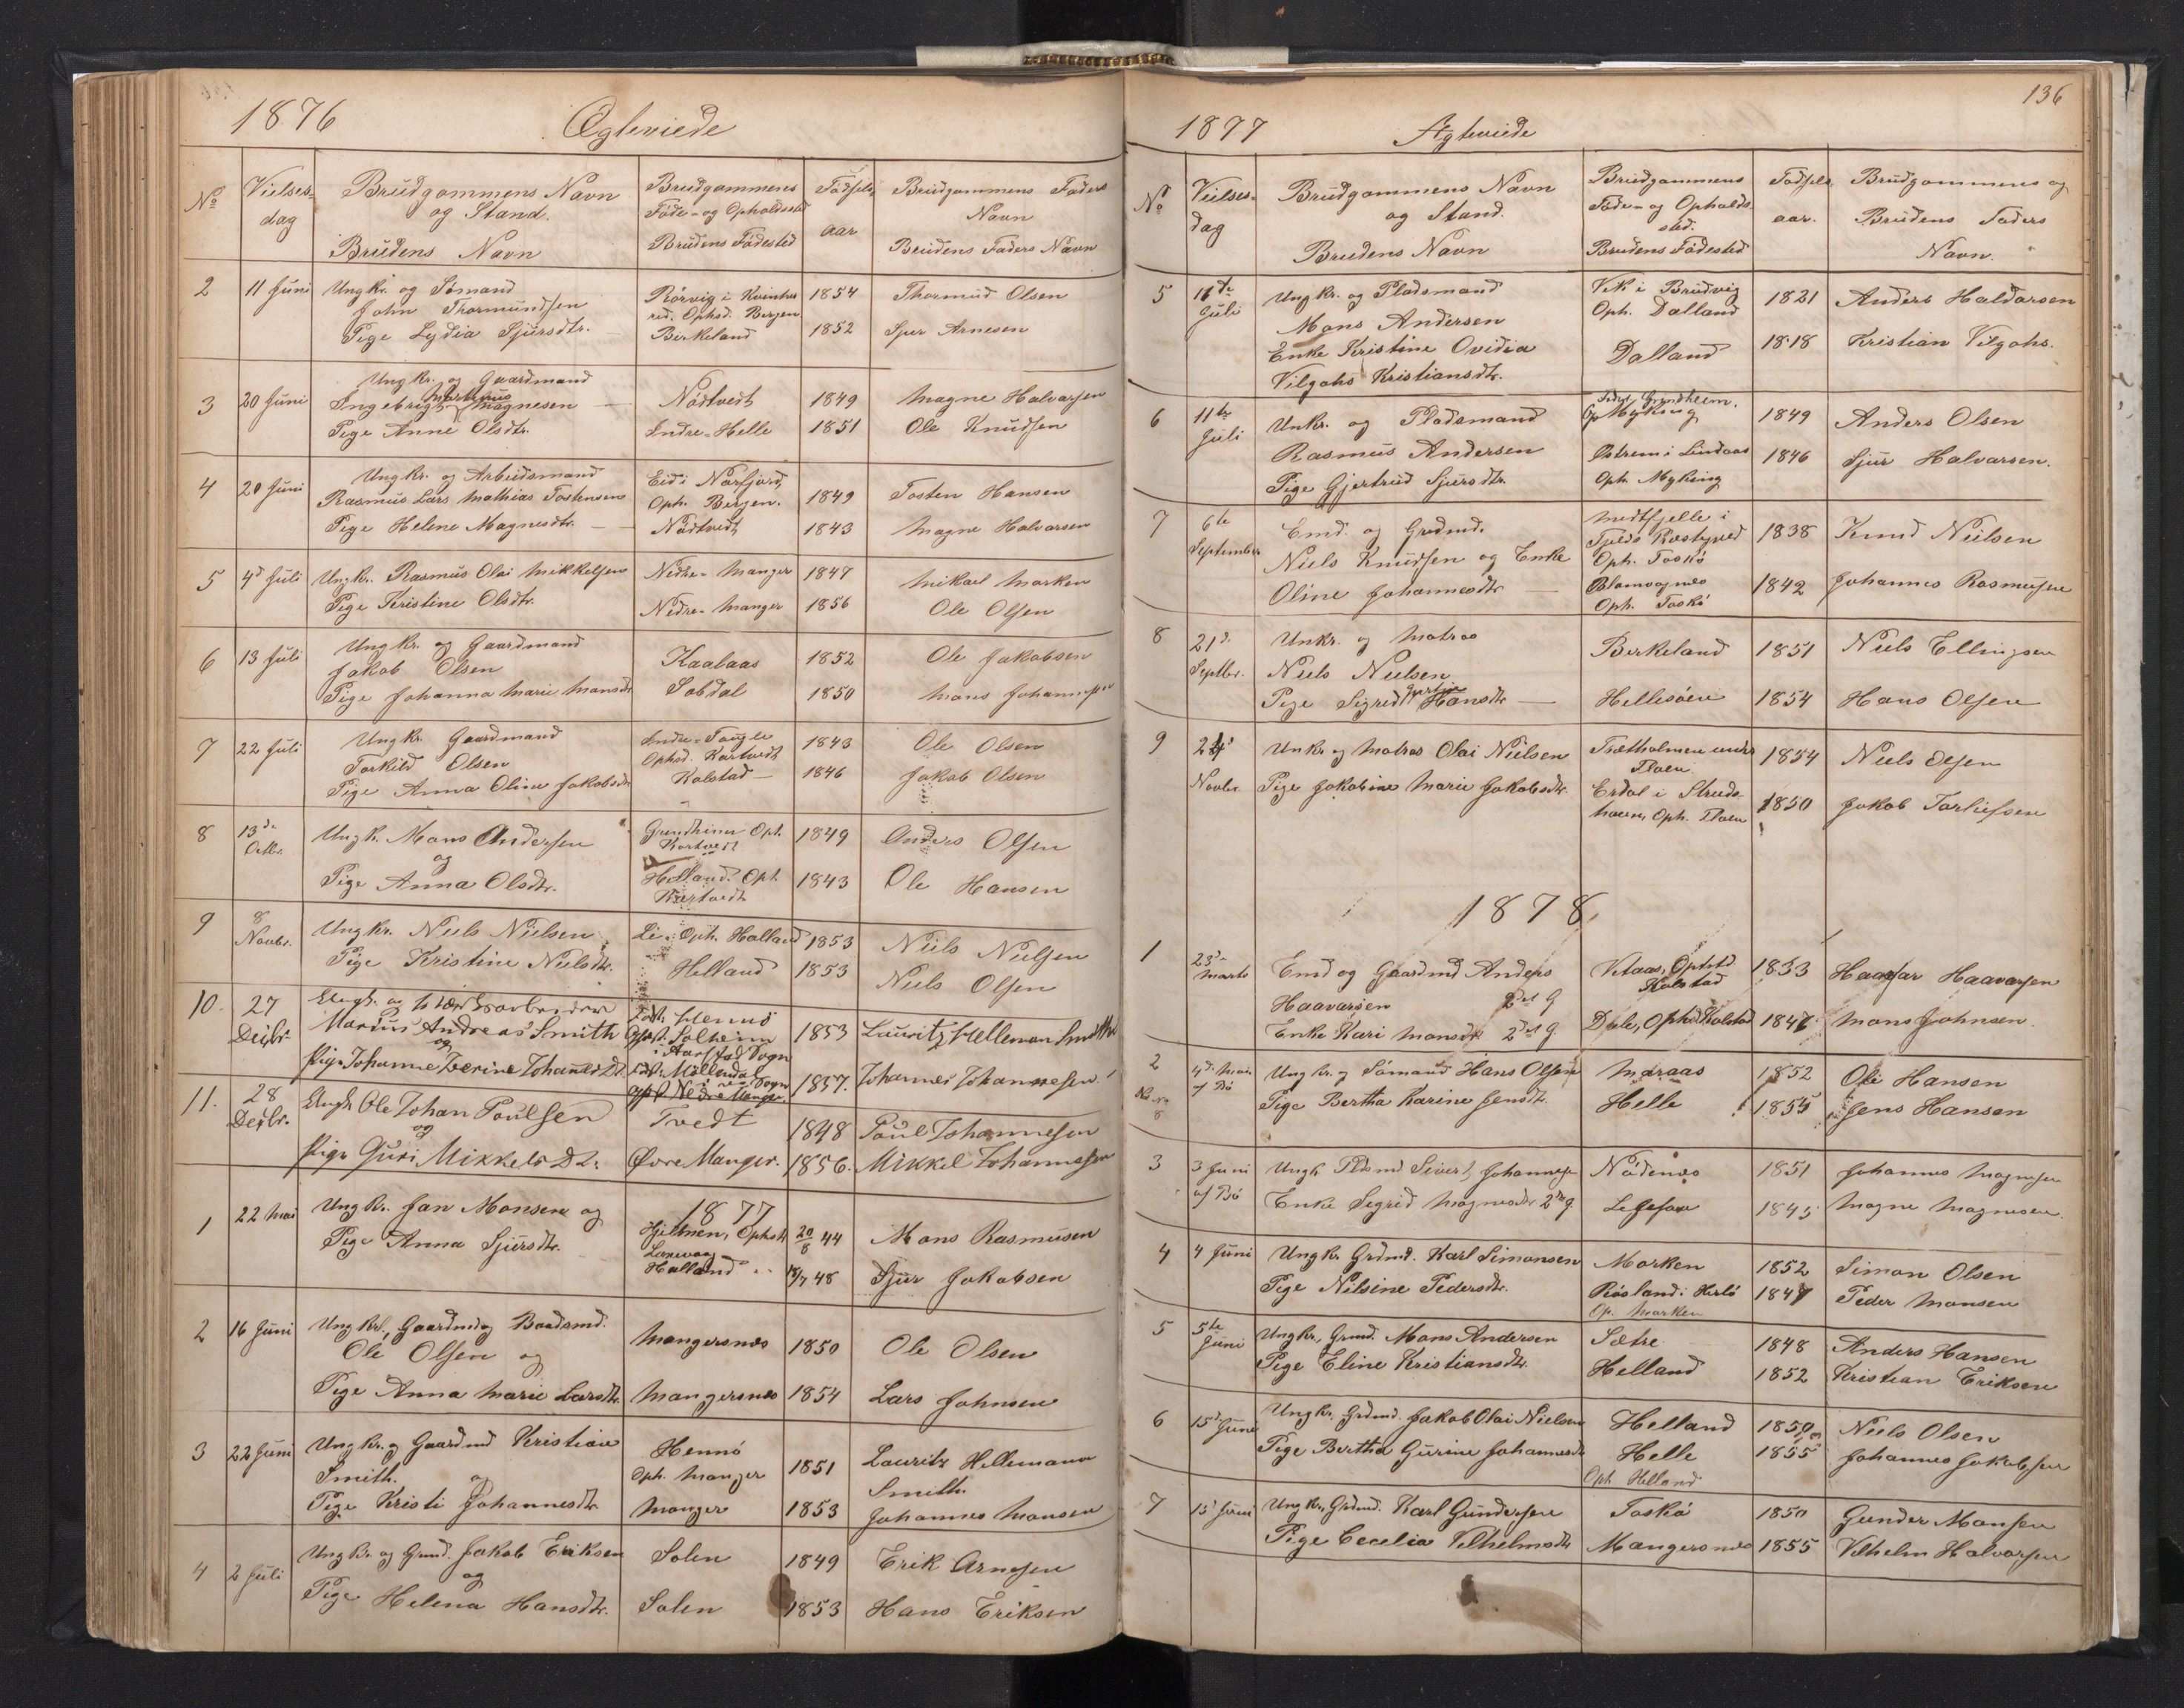 1876 Ægteviede
No Vielses-dag Brudgommens Navn og Stand. Brudens Navn Brudgommens Føde- og Opholdssted Brudens Fødested Fødsels aar Brudgommens Faders Navn Brudens Faders Navn
2 11 Juni Ungkr. og Sømand
John Thormundsen Rørvig i Kvinhered. Ophsd. Bergen 1854 Thormud Olsen
Pige Lydia Sjursdtr. Birkeland 1852 Sjur Arnesen
3 20 Juni Ungkr. og Gaardmand
Ingebrigt Martinus Magnesen Nødtvedt 1849 Magne Halvarsen
Pige Anne Olsdtr. Indre-Helle 1851 Ole Knudsen
4 20 Juni Ungkr. og Arbeidsmand
Rasmus Lars Mathias Tostensen Eid i Norfjord Oph. Bergen. 1849 Tosten Hansen
Pige Helene Magnesdtr. Nødtvedt 1843 Magne Halvarsen
5 4d Juli Ungkr. Rasmus Olai Mikkelsen Nedre-Manger 1847 Mikael Marken
Pige Kristine Olsdtr. Nedre-Manger 1856 Ole Olsen
6 13 Juli Ungkr. og Gaardmand
Jakob Olsen Kaalaas 1852 Ole Jakobsen
Pige Johanna Marie Mansdtr. Solodal 1850 Mons Johannesen
7 22 Juli Ungkr. Gaardmand
Torkild Olsen Indre-Tougle Ophsd. Kartvedt 1843 Ole Olsen
Pige Anna Oline Jakobsdtr. Kolstad 1846 Jakob Olsen
8 13de Octbr. Ungkr. Mons Andersen Grindheim Oph. Kartvedt 1849 Anders Olsen
og
Pige Anna Olsdtr. Helland. Oph. Kartvedt 1843 Ole Hansen
9 8 Novbr. Ungkr. Niels Nielsen Li. Oph. Halland 1853 Niels Nielsen
Pige Kristine Nielsdtr. Helland 1853 Niels Olsen
10. 27 Decbr. Ungk. og
Marius Andreas Smith Hennø Opst. Solheim i Aarstad Sogn 1853 Lauritz Helleman Smith
og
Pige Johanne Zerine Johannesdtr. Møllendal opst. Nedre Manger. 1857. Johannes Johannesen
11. 28 Decbr. Ungk Ole Johan Poulsen Tvedt 1848 Poul Johannesen
og
Pige Guri Mikkelsdtr. Øvre Manger. 1856. Mikkel Johannesen
1877
1 22 Mai Ungkr. Jan Monsen og Hjelmen, Ophsd. Laxevaag 20/8 44 Mons Rasmusen
Pige Anna Sjursdtr. Halland 18/7 48 Sjur Jakobsen
2 16 Juni Ungkrl, Gaardmd og Baadsmd.
Ole Olsen og Mangersnes 1850 Ole Olsen
Pige Anna Marie Larsdtr. Mangersnes 1854 Lars Johnsen
3 22 Juni Ungkr. og Gaardmd Kristian Hennø Oph. Manger 1851 Lauritz Hellemann
Smith. og Smith.
Pige Kristi Johannesdtr. Manger 1853 Johannes Monsen
4 2 Juli Ungkr. og Grmd. Jakob Eriksen Solen 1849 Erik Arnesen
og
Pige Helena Hansdtr. Solen 1853 Hans Eriksen
136
1877 Ægteviede
No Vielses-dag Brudgommens Navn og Stand. Brudens Navn Brudgommens Føde- og Opholdssted. Brudens Fødested Fødsels aar. Brudgommens og Brudens Faders Navn.
5 11te Juli Ungkr. og Pladsmand Vik i Brudvig 1821 Anders Haldorsen
Mons Andersen Oph. Dalland
Enke Kristine Ovidia Dalland 1818 Kristian Vilgohs.
Vilgohs Kristiansdtr.
6 11te Juli Unkr. og Pladsmand Født Grindheim. Op Myking 1849 Anders Olsen
Rasmus Andersen
Pige Gjertrud Sjursdtr. Østrem i Lindaas Oph. Myking 1846 Sjur Halvarsen.
7 6te September Emd. og Grdmd. 1838 Knud Neilsen
Niels Knudsen og Enke Oph. Toskø
Oline Johannesdtr. Blomvagnes Oph. Toskø 1842 Johannes Rasmusen
8 21de Septbr. Unkr. og Matros Birkeland 1851 Niels Ellingsen
Niels Nielsen
Pige Sigrid Hansdtr Hellisøen 1854 Hans Olsen
9 24de Novbr. Unkr. og Matros Olai Nielsen Trætholmen under Floen 1854 Niels Olsen
Pige Jakobine Marie Jakobsdtr. Erdal i Strudshavn, Oph. Floen 1850 Jakob Torliefsen
1878.
1 23de Marts Emd og Gaardmd Anders Vetaas, Ophsd Kolstad 1833 Haavar Haavarsen
Haavarsen 2det G
Enke Kari Mansdtr 2det G. Dale, Ophsd Kolstad 1847 Mons Johnsen.
2 4de Mai af Bø Ungkr. og Sømand Hans Olsen Maraas 1852 Ole Hansen
No 8 Pige Bertha Karine Jensdtr. Helle 1855 Jens Hansen
3 3 Juni af Bø Ungk Pldsmd Sivert Johannesen Nødenes 1851 Johannes Magnesen
Enke Segrid Magnesdtr 2det g. 1845 Magne Magnesen
4 4 Juni Ungkr. Grdmd. Karl Simonsen Marken 1852 Simon Olsen
Pige Nilsine Pedersdtr. Røsland i Herlø 1847 Peder Monsen
Op. Marken
5 5te Juni Ungkr, Grmd. Mons Andersen Sætre 1848 Anders Hansen
Pige Eline Kristiansdtr. Helland 1852 Kristian Eriksen
6 15de Juni Ungkr. Grdmd. Jakob Olai Nielsen Helland 1850 Niels Olsen
Pige Bertha Gurine Johannesdtr Helle 1855 Johannes Jakobsen
Oph Helland
7 15de Juni Ungkr, Grdmd. Karl Gundersen Toskø 1850 Gunder Monsen
Pige Cecelia Vilhelmsdtr Mangersnes 1855 Vilhelm Halvorsen